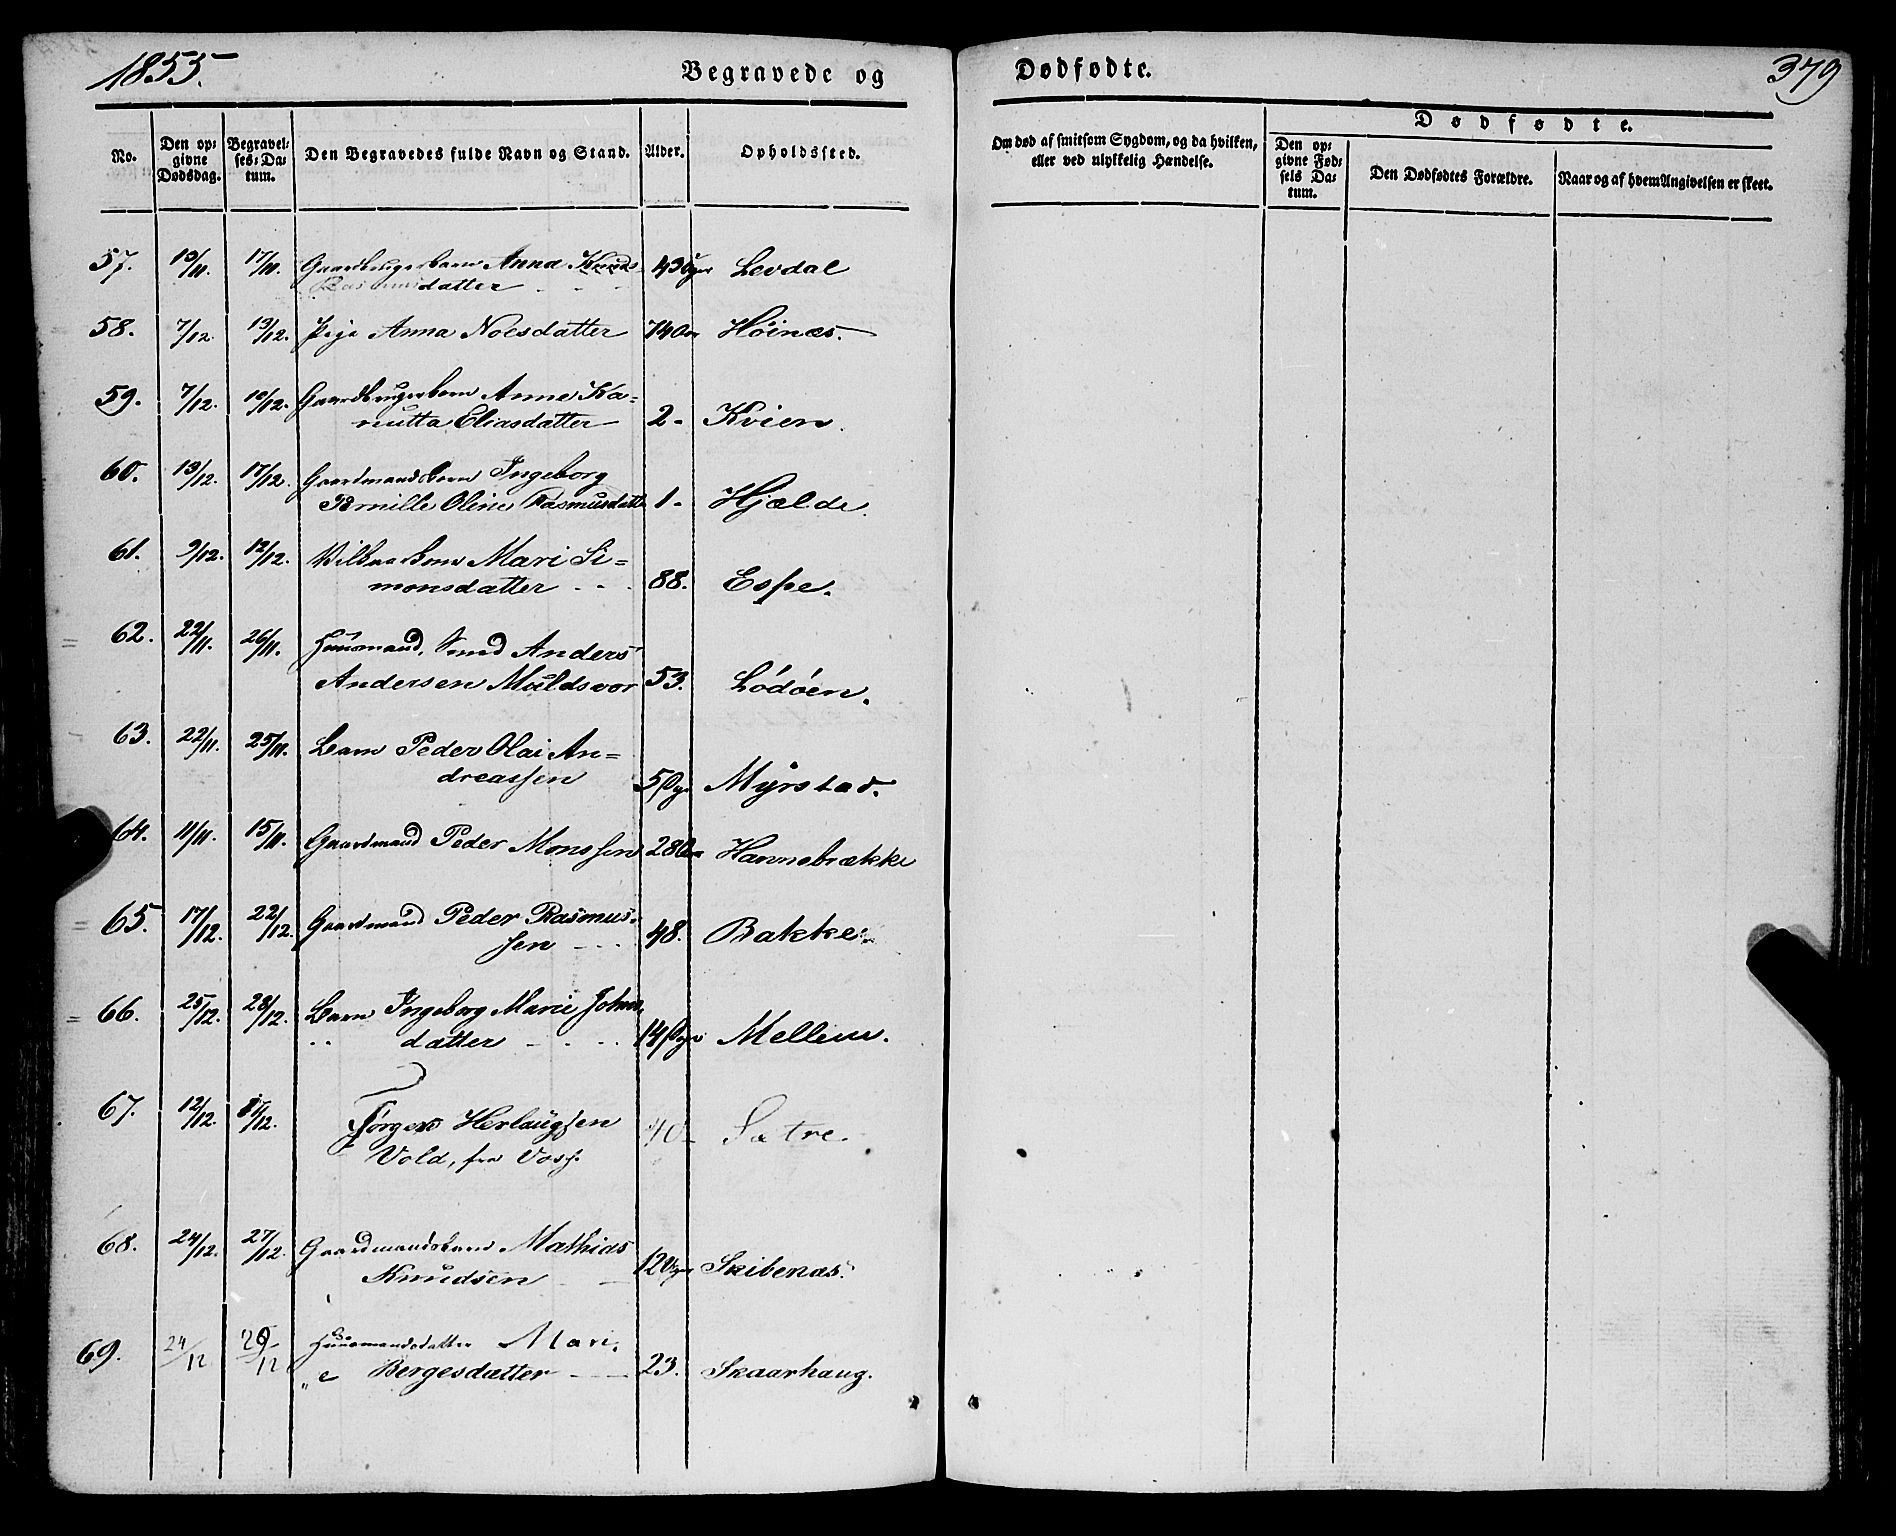 1855.
Begravede og
Dødfødte.
379
No.
Den opgivne Dødsdag.
Begravelses-Datum.
Den Begravedes fulde Navn og Stand.
Alder.
Opholdssted.
Om død af smitsom Sygdom, og da hvilken, eller ved ulykkelig Hændelse.
Dødfødte.
Den opgivne Fødsels Datum.
Den Dødfødtes Forældre.
Naar og af hvem Angivelsen er skeet.
57. 13/11. 17/11. Gaardbrugerbarn Anna Levdal
datter
58. 7/12. 13/12. Pige Anna Noesdatter 74 Høinæs.
59. 7/12. 10/12. Gaardbrugerbarn Anne Ka=
nutta Eliasdatter 2 - Kvien.
60. 13/12. 17/12. Gaardmandsbarn Ingeborg
Pernille Oline Rasmusdatt 1 - Hjælde.
61. 9/12. 12/12. Mari Si=
monsdatter 88. Espe.
62. 22/11. 26/11. Huusmand, Anders
Andersen Muldsvor 53. Lødøen.
63. 22/11. 25/11. Barn Peder Olai An=
dreassen Myrstad.
64. 11/11. 15/11. Gaardmand Peder Monssen 28 Hannebrække
65. 17/12. 22/12. Gaardmand Peder Rasmus-
sen 48. Bakke.
66. 25/12. 28/12. Barn Ingeborg Marie Johns
datter Mellem.
67. 12/12. 17/12. Jørgen Herlaugsen
Vold, fra Voss. 40 - Sætre.
68. 24/12. 27/12. Gaardmandsbarn Mathias
Knudsen Skibenæs.
69. 24/12 Huusmandsdatter Mari.
Bergesdatter 23. Skaarhaug.